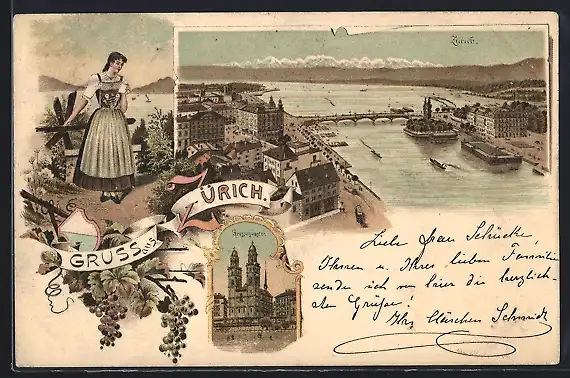 Zürich.
GRUSS aus
ZÜRICH.
Grossmünster
Liebe Frau Schücke,
Ihnen u. Ihrer lieben Familie
sende ich von hier die herzlich-
sten Grüsse!
Ihr Clärchen Schmidt